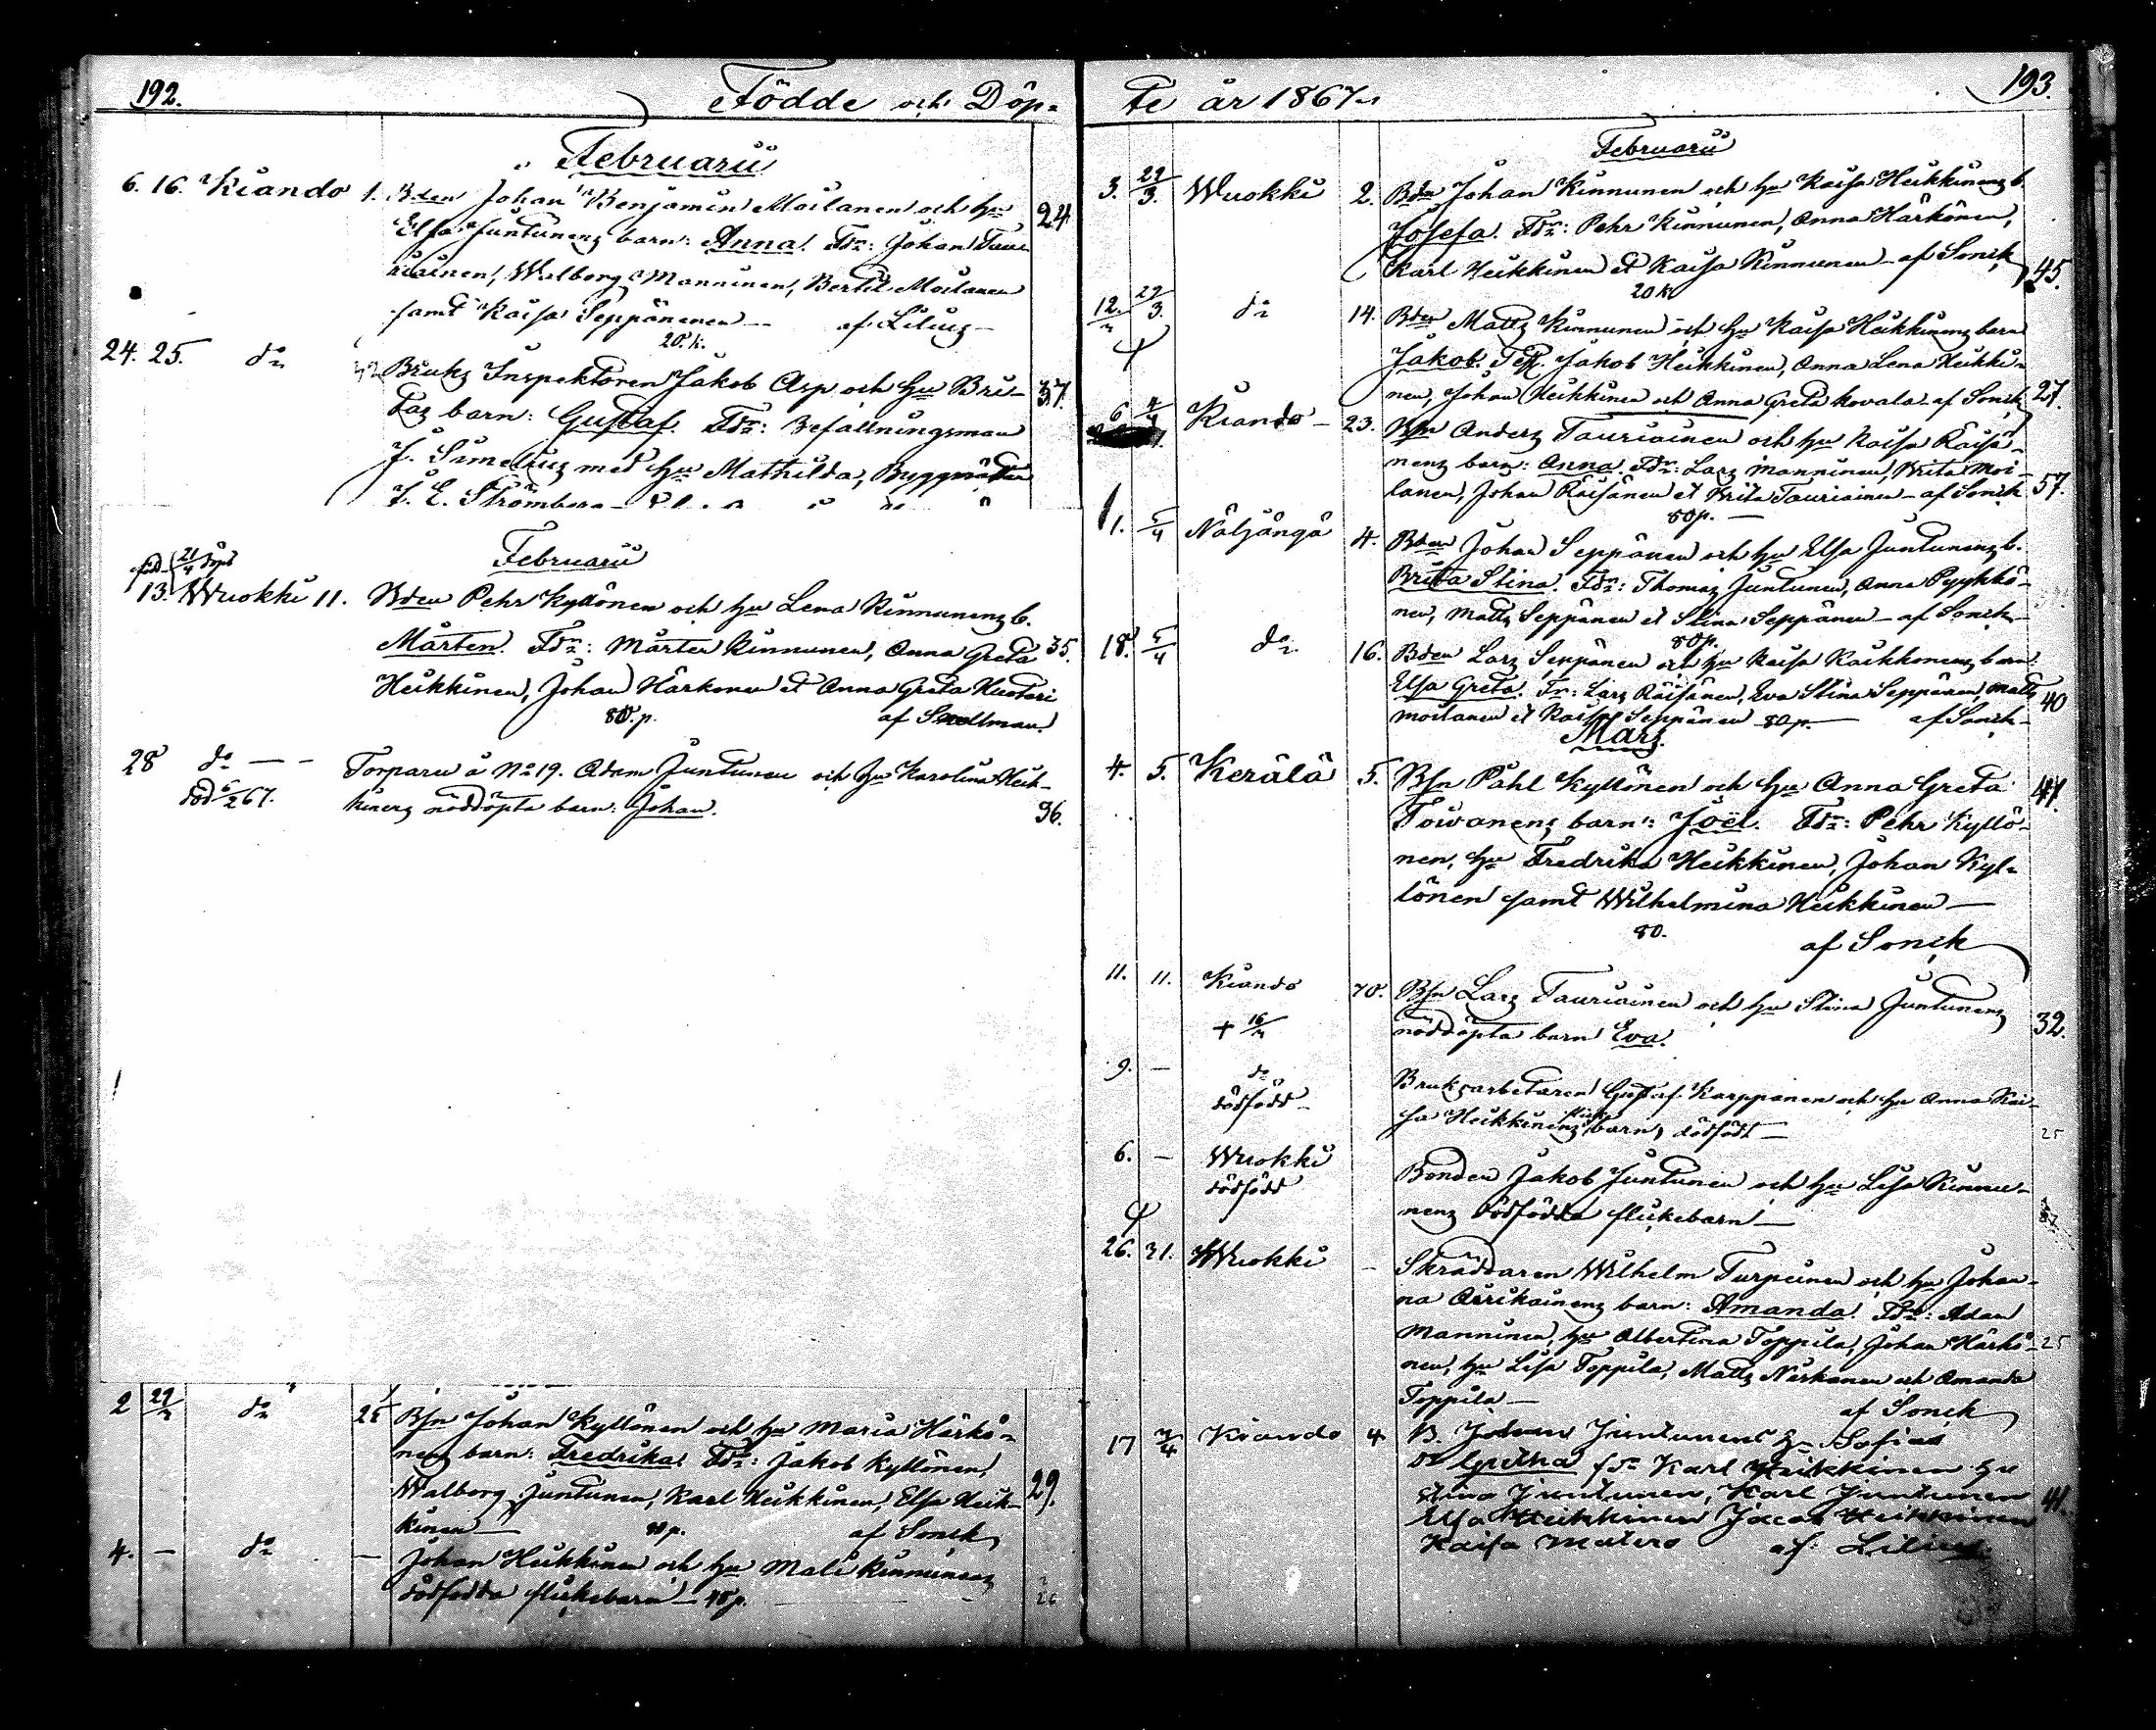 192.
Födde och Döp=
Februarii
6. 16. Kiando 1. Bden Johan Benjamin Moilanen och hu
Elsa Juntunens barn: Anna. Fdr: Johan Tau-
riainen, Walborg Manninen, Bertil Moilanen
samt Kaisa Seppänen — af Lilius —
20 k.
24. 25. do Bruks Inspektoren Jakob Asp och hu Bri-
tas barn: Gustaf. Fdr: Befallningsman
J. Simelius med hu Mathilda, Byggmästar
J. E. Strömberg
24
37.
Februarii
född 21/4 döpt
13. Wuokki 11. Bden Pehr Kyllönen och hu Lena Kinnunens b.
Mårten. Fdr: Mårten Kinnunen, Anna Greta 35.
Heikkinen, Johan Härkönen et Anna Greta Huotari
80. p. af Snellman.
28 do — — Torparn å No 19. Adam Juntunen och hu Karolina Heik-
död 6/2 67. kinens nöddöpta barn: Johan. 36.
2 29/3 do Bsn Johan Kyllönen och hu Maria Härkö-
nens barn: Fredrika. Fdr: Jakob Kyllönen,
Walborg Juntunen, Karl Heikkinen, Elsa Heik- 29.
kinen — 80 p. af Sonck
4. — do — Johan Heikkinen och hu Mali Kinnunens
dödfödda flickebarn —
26
193.
te år 1867.
Februarii
3. 29/3. Wuokki 2. Bdn Johan Kinnunen och hu Kaisa Heikkinens b.
Josefa. Fdr: Pehr Kinnunen, Anna Härkönen,
Karl Heikkinen et Kaisa Kinnunen — af Sonck 45.
20 k
12. 29/3. do 14. Bden Matts Kinnunen och hu Kaisa Heikkinens barn
Jakob. Fdr. Jakob Heikkinen, Anna Lena Heikki-
nen, Johan Heikkinen och Anna Greta Kovala af Sonck 27.
6 4/4 Kiando — 23. Bsn Anders Tauriainen och hu Kaisa Räisä-
nens barn: Anna. Fdr: Lars Manninen, Brita Moi-
lanen, Johan Räisänen et Brita Tauriainen — af Sonck 57.
80 p. —
1. 5/4 Näljängä 4. Bden Johan Seppänen och hu Elsa Juntunens b.
Brita Stina. Fdr: Thomas Juntunen, Anna Pyykkö-
nen, Matts Seppänen et Stina Seppänen — af Sonck —
80 p.
18. 5/4 do 16. Bden Lars Seppänen och hu Kaisa Kaikkonens barn:
Elsa Greta. Fr: Lars Räisänen, Eva Stina Seppänen, Matts 40
Moilanen et Kaisa Seppänen 80 p. — af Sonck —
Mars.
4. 5. Kerälä 5. Bsn Påhl Kyllönen och hu Anna Greta 41.
Toivanens barn: Joël. Fdr: Pehr Kyllö-
nen, hu Fredrika Heikkinen, Johan Kyl-
lönen samt Wilhelmina Heikkinen —
80. af Sonck
11. 11. Kiando 70. Bsn Lars Tauriainen och hu Stina Juntunens
+ 16/3 nöddöpta barn Eva. 32.
9. — do Bruksarbetaren Gustaf Karppanen och hu Anna Kai-
dödfödd — sa Heikkinens flicke barn, dödfödt — 25
6. — Wuokki Bonden Jakob Juntunen och hu Lisa Kinnu-
dödfödd nens dödfödda flickebarn —
26. 31. Wuokki — Skräddaren Wilhelm Turpeinen och hu Johan-
na Orrikainens barn: Amanda. Fdr: Adam
Manninen, hu Albertina Toppila, Johan Härkö- 25
nen, hu Lisa Toppila, Matts Niskanen och Amanda
Toppila — af Sonck
17 7/4 Kiando 4 B. Johan Juntunens hu Sofias
Gretha fdr Karl Heikkinen hu
Stina Juntunen, Karl Juntunen
Elsa Heikkinen Jacob Heikkinen 41.
Kaisa Matero af: Lilius.